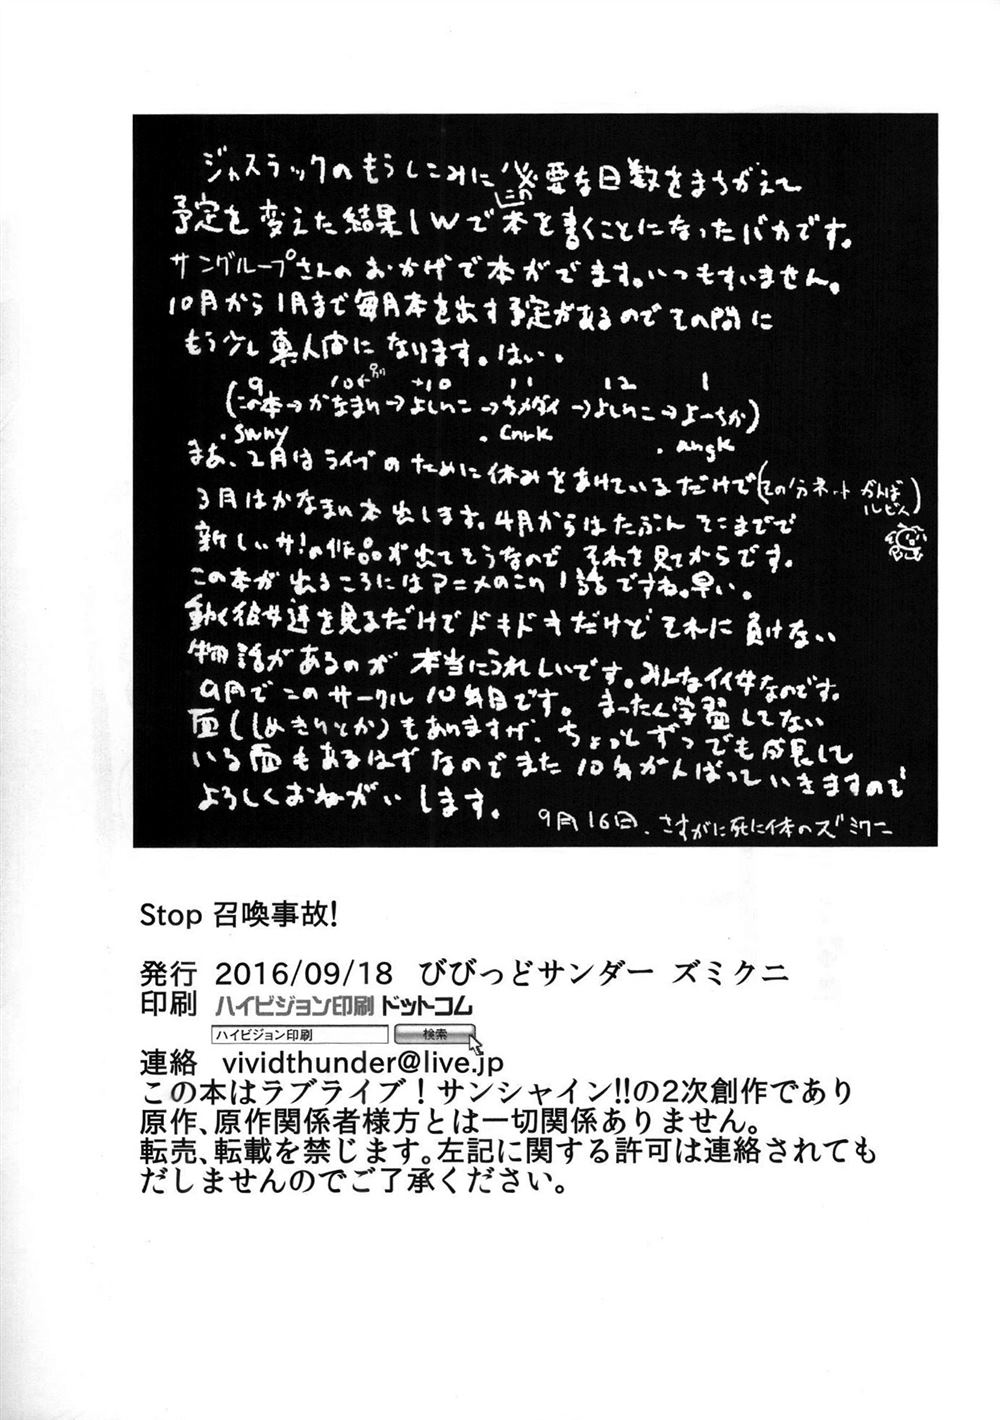 ジャスラックのもうしこみに必要な日数をまちがえて
予定を変えた結果1Wで本を書くことになったバカです。
サングループさんのおかげで本がでます。いつもすいません。
10月から1月まで毎月本を出す予定があるのでその間に
もう少し真人間になります。はい。
9 10 +10 11 12 1
(この本→かなまり→よしりこ→ちかダイ→よしりこ→よーちか)
まあ、2月はライブのために休みをあけているだけで(その分ネットがんば
3月はかなまり本出します。4月からはたぶんそこまでで
新しいサ!の作品が出てそうなのでそれを見てからです。
この本が出るころにはアニメのこり1話ですね。早い。
動く彼女達を見るだけでドキドキだけどそれに負けない
物語があるのが本当にうれしいです。みんなイイ女なのです。
9月でこのサークル10年目です。まったく学習してない
面(しめきりとか)もありますが、ちょっとずつでも成長して
いる面もあるはずなのでまた10年がんばっていきますので
よろしくおねがいします。
9月16日.さすがに死に体のズミクニ
Stop 召喚事故!
発行 2016/09/18 びびっどサンダー ズミクニ
印刷 ハイビジョン印刷 ドットコム
ハイビジョン印刷 検索
連絡 vividthunder@live.jp
この本はラブライブ！サンシャイン!!の2次創作であり
原作、原作関係者様方とは一切関係ありません。
転売、転載を禁じます。左記に関する許可は連絡されても
だしませんのでご了承ください。